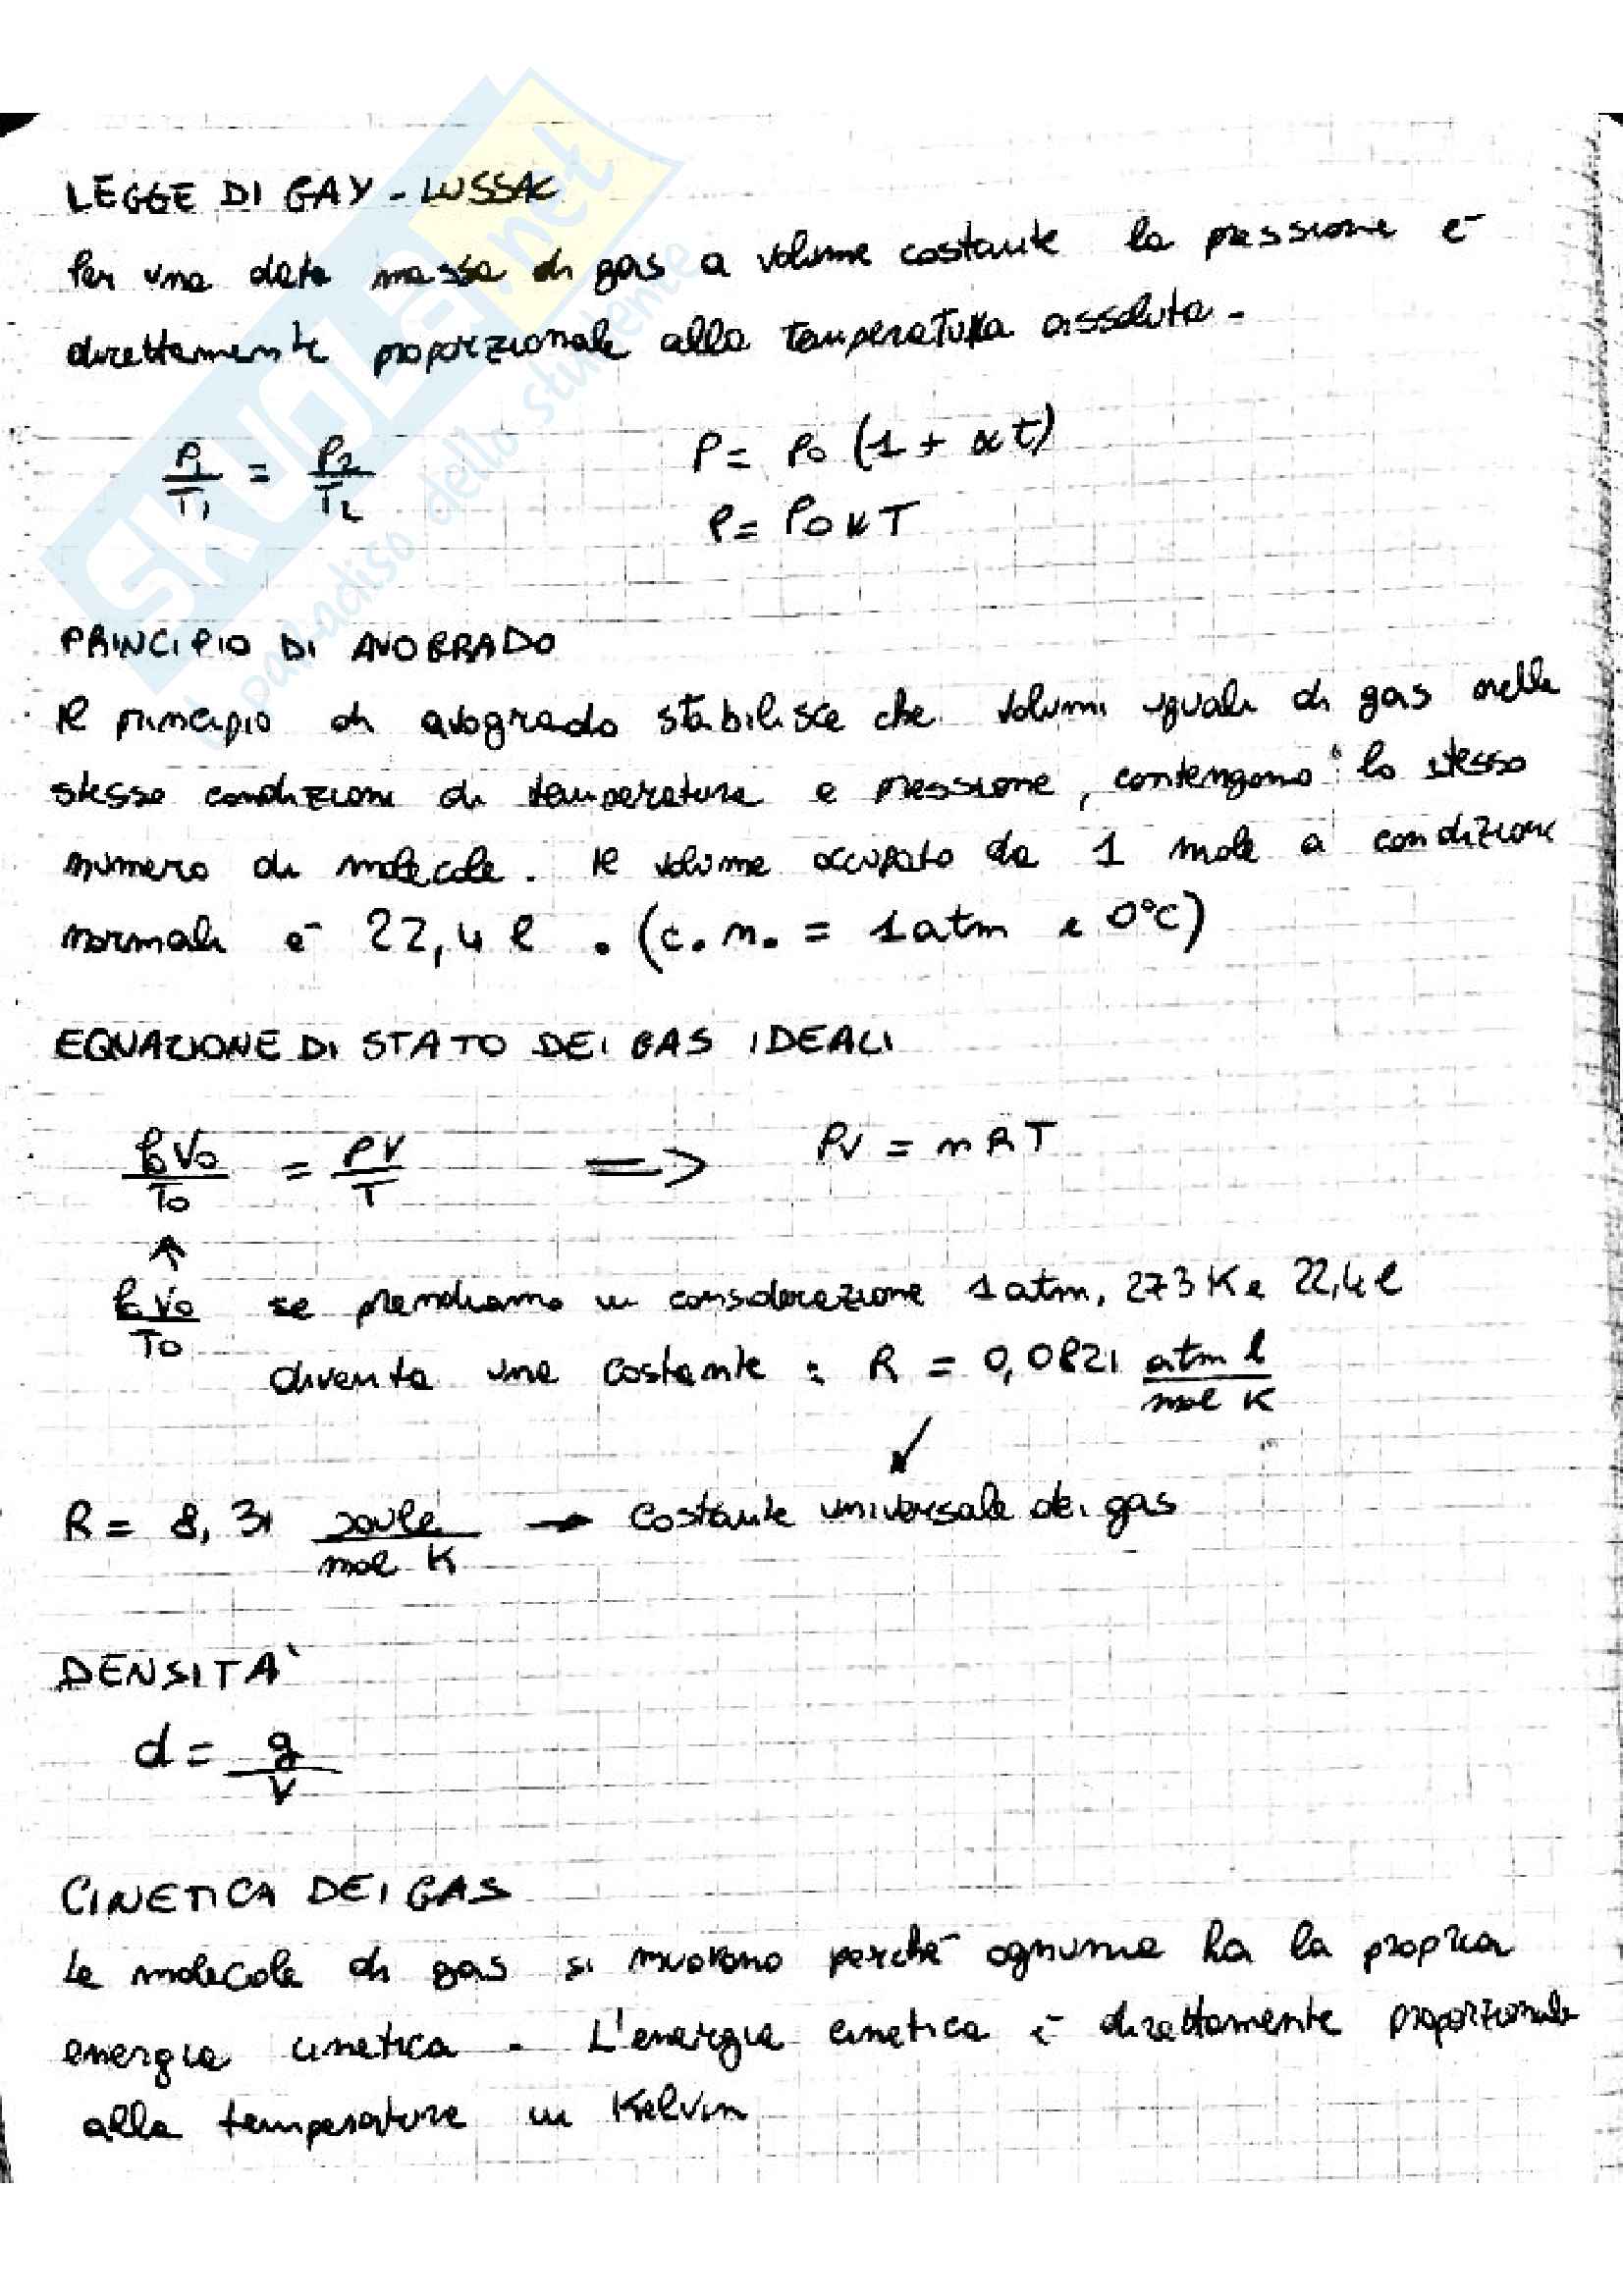 LEGGE DI GAY-LUSSAC
Per una data massa di gas a volume costante la pressione è
direttamente proporzionale alla temperatura assoluta.
P1/T1 = P2/T2
P = P0 (1 + αt)
P = P0 α T
PRINCIPIO DI AVOGRADO
Il principio di avogrado stabilisce che volumi uguali di gas nelle
stesse condizioni di temperatura e pressione, contengono lo stesso
numero di molecole. Il volume occupato da 1 mole a condizioni
normali è 22,4 l. (c.n. = 1 atm e 0°C)
EQUAZIONE DI STATO DEI GAS IDEALI
P0V0/T0 = PV/T => PV = nRT
↑
P0V0/T0 se prendiamo in considerazione 1 atm, 273 K e 22,4 l
diventa una costante : R = 0,0821 atm l/mol K
R = 8,31 joule/mol K → costante universale dei gas
DENSITA'
d = g/V
CINETICA DEI GAS
Le molecole di gas si muovono perché ognuna ha la propria
energia cinetica. L'energia cinetica è direttamente proporzionale
alla temperatura in Kelvin
SKUOLA.net
il paradiso dello studente